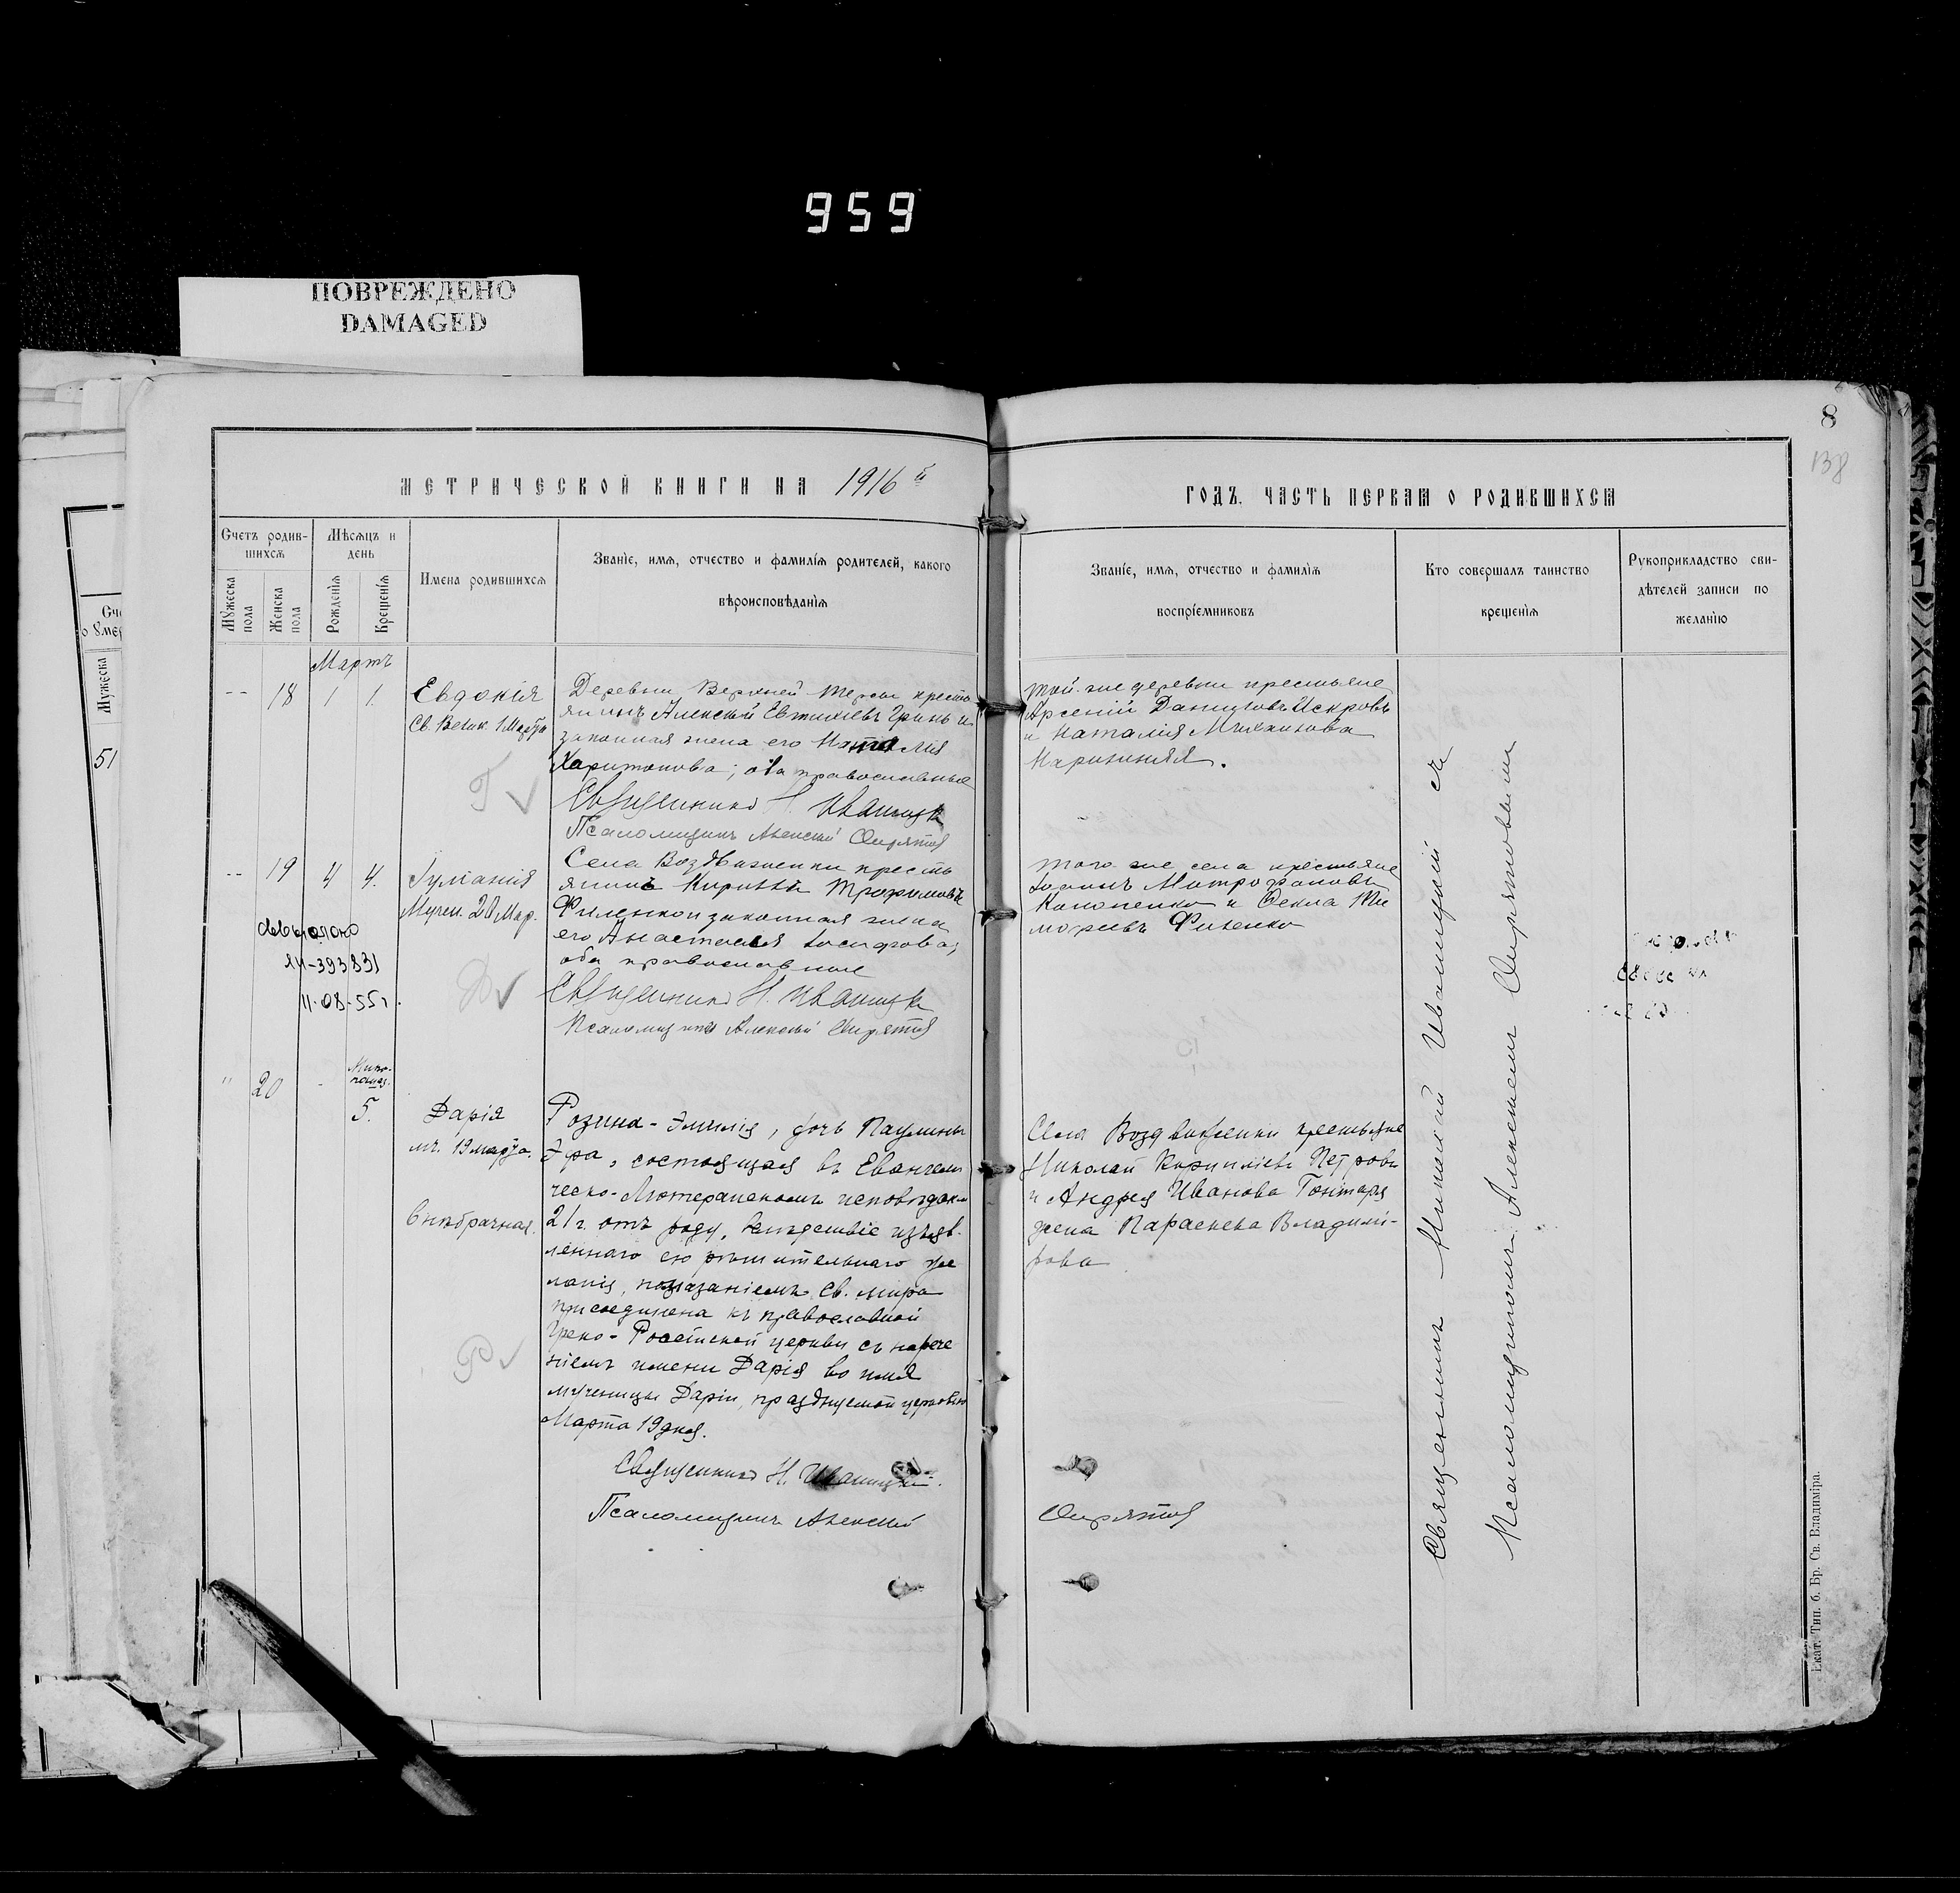 959
ПОВРЕЖДЕНО
DAMAGED
8
138
МЕТРИЧЕСКОЙ КНИГИ НА 1916 й
ГОДЪ. ЧАСТЬ ПЕРВАЯ О РОДИВШИХСЯ
Счетъ родив-
шихся
Мѣсяцъ и
день
Имена родившихся
Званіе, имя, отчество и фамилія родителей, какого
вѣроисповѣданія
Мужеска
пола
Женска
пола
Рожденія
Крещенія
Званіе, имя, отчество и фамилія
воспріемниковъ
Кто совершалъ таинство
крещенія
Рукоприкладство сви-
дѣтелей записи по
желанію
Мужеска
51
Мартъ
-- 18 1 1.
Евдокія
Св. Велик. 1 Марта
Деревни Верхней Терсы кресть
янинъ Алексѣй Евтихіевъ Гринь и
законная жена его Наталія
Харитонова; оба православные
Священникъ Н. Иваницкій
Псаломщикъ Алексѣй
той-же деревни крестьяне
Арсеній Даниловъ Искровъ
и Наталія Михайлова
-- 19 4 4.
Іуліанія
Мучен. 20 Мар.
Села Воздвиженки кресть
янинъ Кириллъ Трофимовъ
Филенко и законная жена
его Анастасія Іосифова,
оба православные
Священникъ Н. Иваницкій
Псаломщикъ Алексѣй
того же села крестьяне
Іоаннъ Митрофановъ
Кононенко и Ѳекла
Филенко
ЯИ-393831
11-08-55г.
" 20 -
Мѵро-
помаз.
5.
Дарія
мч. 19 марта.
Внѣбрачная.
Розина-Эмилія, дочь Паулины
Эфа, состоящая въ Евангели
ческо-Лютеранскомъ исповѣдан.
21 г. отъ роду, вслѣдствіе изъяв-
леннаго ею рѣшительнаго же
ланія, помазаніемъ Св. мира
присоединена къ православной
Греко-Россійской церкви съ нарече
ніемъ имени Дарія во имя
мученицы Даріи, празднуемой церковью
Марта 19 дня.
Священникъ Н. Иваницкій.
Псаломщикъ Алексѣй
Села Воздвиженки крестьяне
Николай Кирилліевъ Петровъ
и Андрея Иванова Гонтаря
жена Параскева Владимі-
рова
Священникъ Николай Иваницкій съ
Псаломщикомъ Алексѣемъ
Екат. Тип. б. Бр. Св. Владиміра.